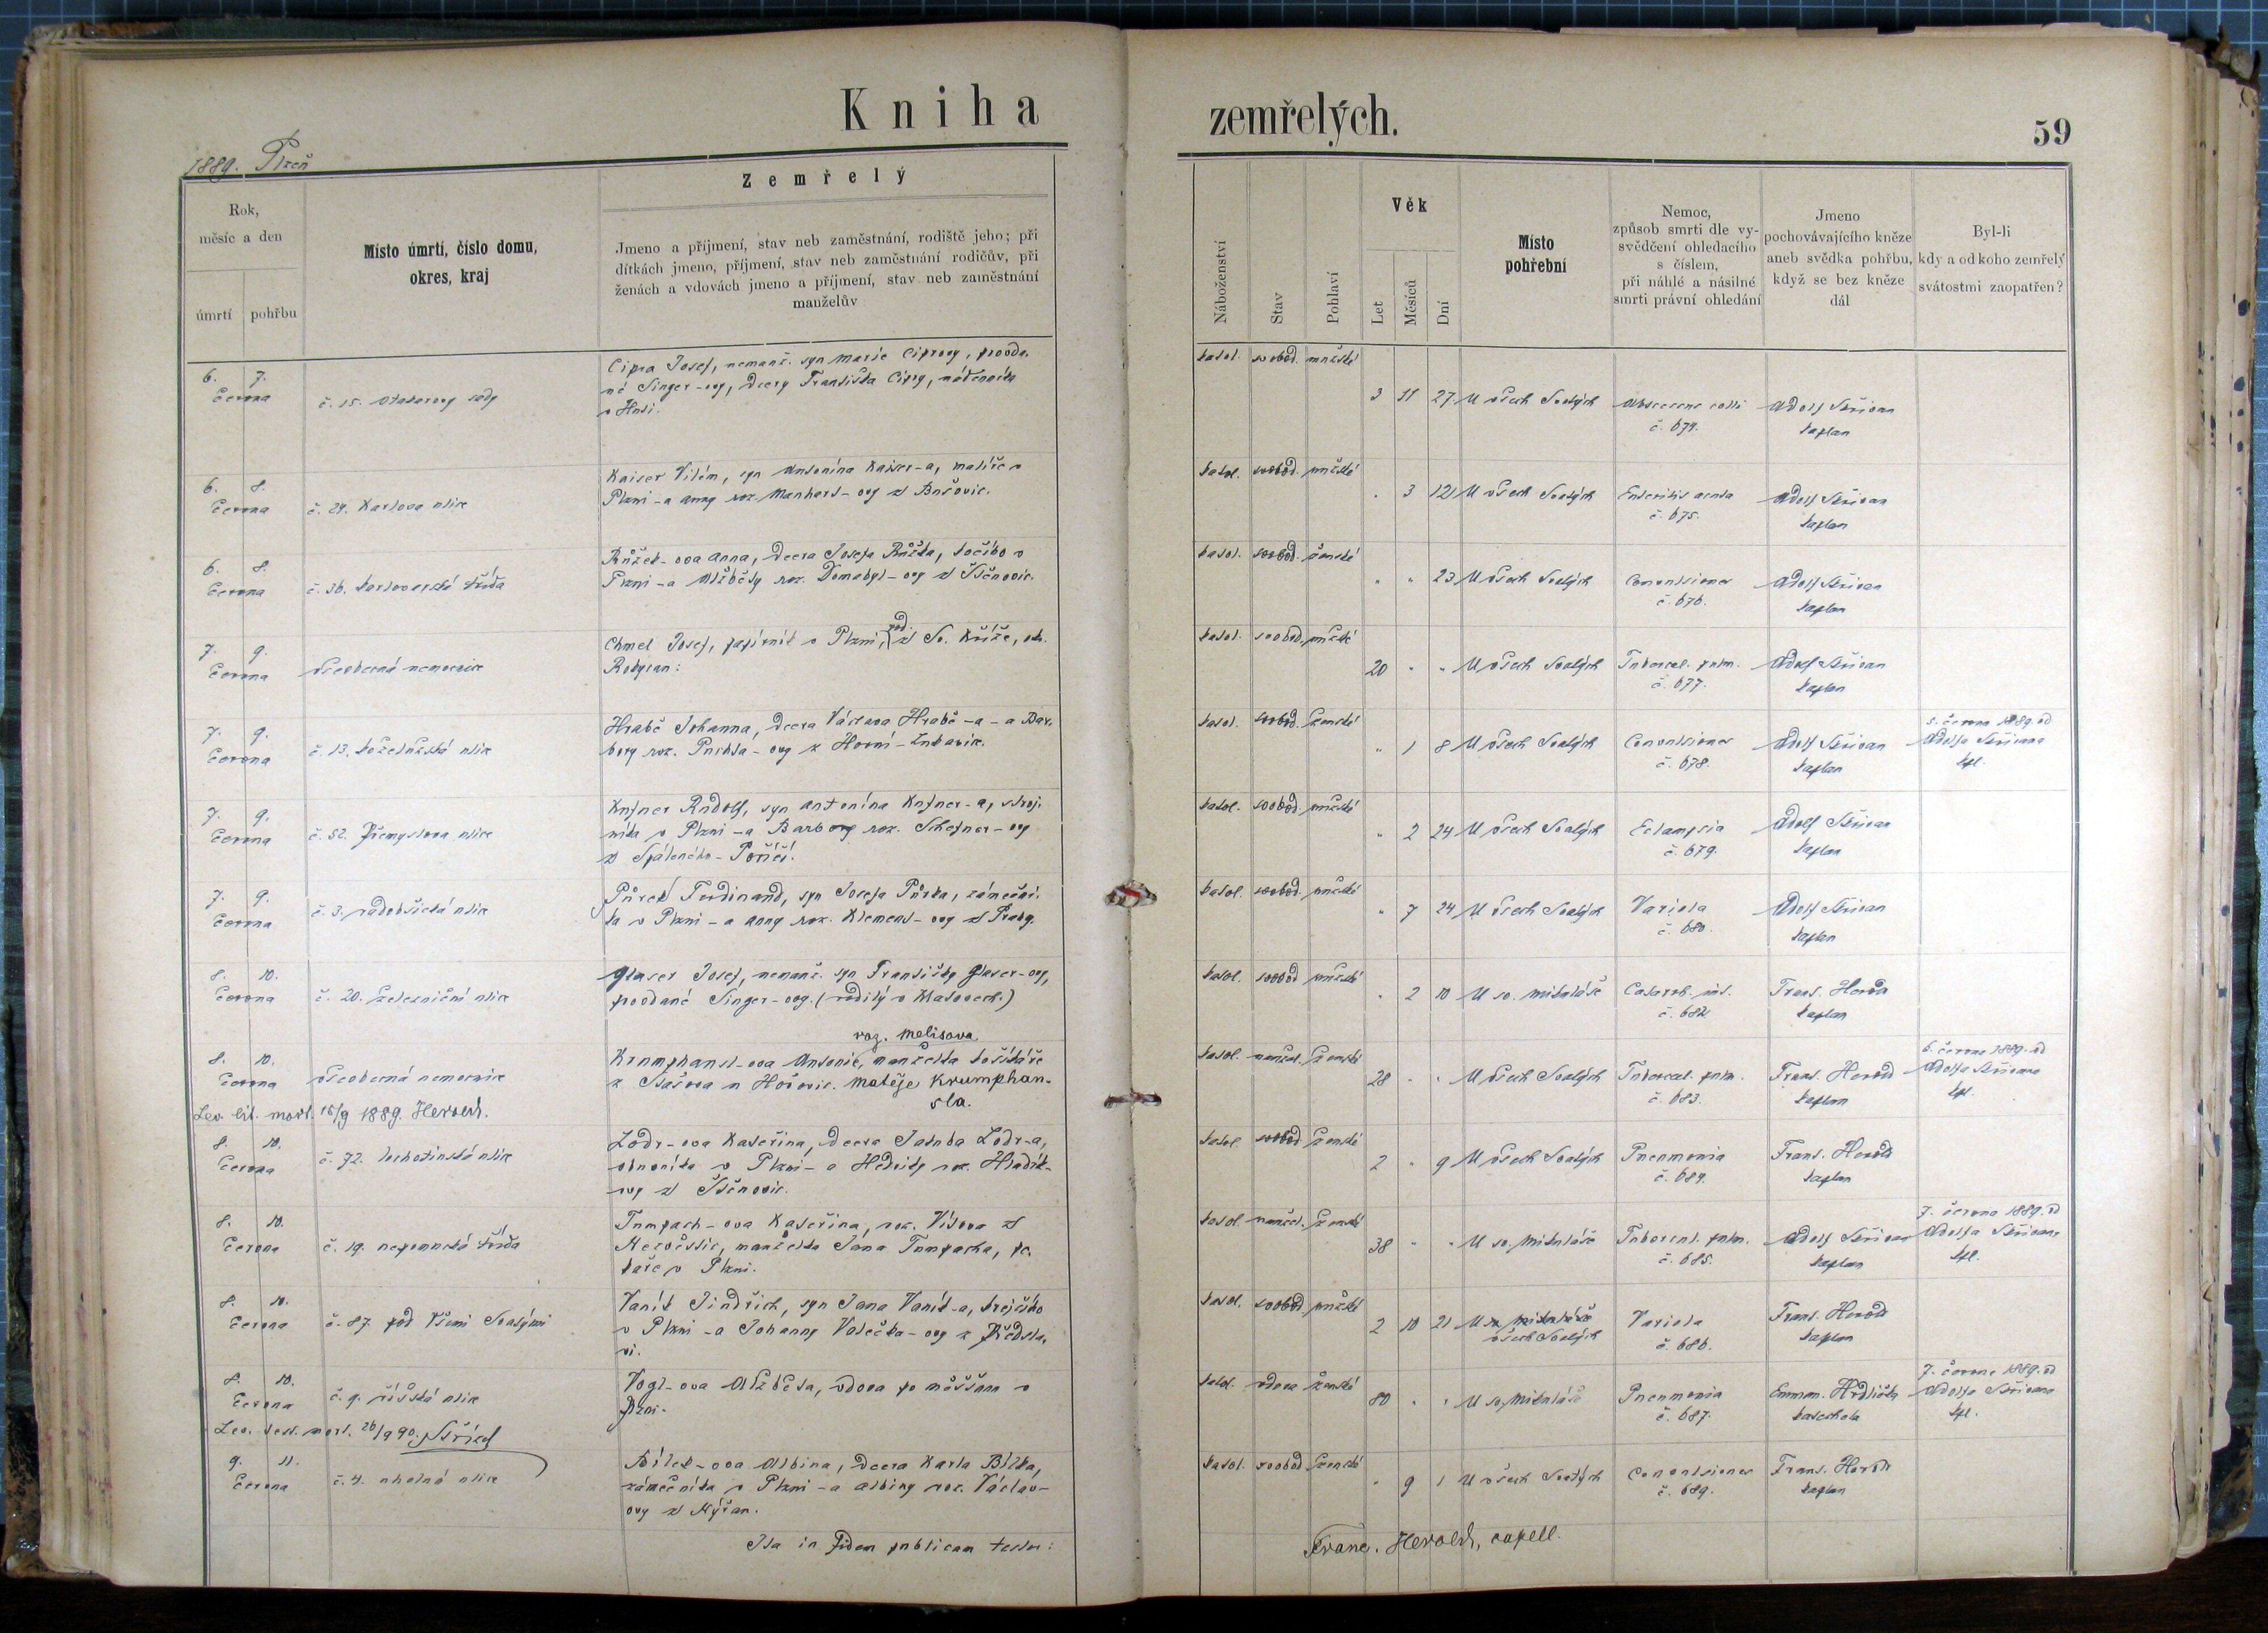 Kniha zemřelých.
59
1889. Plzeň
Zemřelý
Rok,
měsíc a den
úmrtí
pohřbu
Místo úmrtí, číslo domu,
okres, kraj
Jmeno a příjmení, stav neb zaměstnání, rodiště jeho; při
dítkách jmeno, příjmení, stav neb zaměstnání rodičův, při
ženách a vdovách jmeno a příjmení, stav neb zaměstnání
manželův
Náboženství
Stav
Pohlaví
Věk
Let
Měsíců
Dní
Místo
pohřební
Nemoc,
způsob smrti dle vy-
svědčení ohledacího
s číslem,
při náhlé a násilné
smrti právní ohledání
Jmeno
pochovávajícího kněze
aneb svědka pohřbu,
když se bez kněze
dál
Byl-li
kdy a od koho zemřelý
svátostmi zaopatřen?
6. 7.
června
č. 15. Otakarovy sady
Cipra Josef, nemanž. syn Marie Ciprovy, provda-
né Singer-ovy, dcery Františka Cipry,
katol. svobod. mužské
3 11 27 U všech Svatých
č. 674.
Adolf Skřivan
kaplan
6. 8.
června
č. 24. Karlova ulice
Kaiser Vilém, syn Antonína Kaiser-a, malíře v
Plzni - a Anny roz. Manhart-ovy z
katol. svobod. mužské
" 3 12 U všech Svatých
Enteritis acuta
č. 675.
Adolf Skřivan
kaplan
6. 8.
června
č. 36. karlovarská třída
Růžek-ova Anna, dcera Josefa Růžka, kočího v
Plzni - a Alžběty roz. Domabyl-ovy z Štěnovic.
katol. svobod. ženské
" " 23 U všech Svatých
Convulsiones
č. 676.
Adolf Skřivan
kaplan
7. 9.
června
všeobecná nemocnice
Chmel Josef, papírník v Plzni, rod. z Sv. Kříže, ok.
Rokycan:
katol. svobod. mužské
20 " " U všech Svatých
Tubercul. pulm.
č. 677.
Adolf Skřivan
kaplan
7. 9.
června
č. 13. koželužská ulice
Hrabě Johanna, dcera Václava Hrabě-a - a Bar-
bory roz.
katol. svobod. ženské
" 1 8 U všech Svatých
Convulsiones
č. 678.
Adolf Skřivan
kaplan
5. června 1889. od
Adolfa Skřivana
kpl.
7. 9.
června
č. 52. Přemyslova ulice
Knfner Rudolf, syn Antonína Knfner-a, stroj-
níka v Plzni - a Barbory roz. Schefner-ovy
z Spáleného-Poříčí.
katol. svobod. mužské
" 2 24 U všech Svatých
Eclampsia
č. 679.
Adolf Skřivan
kaplan
7. 9.
června
č. 3. radobšická ulice
Půrek Ferdinand, syn Josefa Půrka, zámeční-
ka v Plzni - a Anny roz. Klement-ovy z Prahy.
katol. svobod. mužské
" 7 24 U všech Svatých
Variola
č. 680.
Adolf Skřivan
kaplan
8. 10.
června
č. 20. železniční ulice
Glaser Josef, nemanž. syn Františky Glaser-ovy,
provdané Singer-ovy. (rodilý v Klatovech.)
katol. svobod. mužské
" 2 10 U sv. Mikuláše
Catarrh. int.
č. 682.
Frant. Herold
kaplan
8. 10.
června
všeobecná nemocnice
roz. Melisova
Krumphansl-ova Antonie, manželka košíkáře
z u Hořovic. Matěje Krumphan-
sla.
Lev. lit. mort. 16/9 1889. Herold.
katol. manžel. ženské
28 " " U všech Svatých
Tubercul. pulm.
č. 683.
Frant. Herold
kaplan
6. června 1889. od
Adolfa Skřivana
kpl.
8. 10.
června
č. 72. lochotínská ulice
Lodr-ova Kateřina, dcera Jakuba Lodr-a,
obuvníka v Plzni - a Hedviky roz. Hladík-
ovy z Štěnovic.
katol. svobod. ženské
2 " 9 U všech Svatých
Pneumonia
č. 684.
Frant. Herold
kaplan
8. 10.
června
č. 19. nepomucká třída
Tumpach-ova Kateřina, roz. Vítova z
manželka Jána Tumpacha, pe-
kaře v Plzni.
katol. manžel. ženské
38 " " U sv. Mikuláše
Tubercul. pulm.
č. 685.
Adolf Skřivan
kaplan
7. června 1889. od
Adolfa Skřivana
kpl.
8. 10.
června
č. 87. pod Všemi Svatými
Vaník Jindřich, syn Jana Vaník-a, krejčího
v Plzni - a Johanny Valečka-ovy z Předsla-
vi.
katol. svobod. mužské
2 10 21 U sv. Mikuláše
všech Svatých
Variola
č. 686.
Frant. Herold
kaplan
8. 10.
června
č. 9. říšská ulice
Vogl-ova Alžběta, vdova po měšťanu v
Plzni.
Lev. test. mort. 26/9 90.
katol. vdova ženské
80 " " U sv. Mikuláše
Pneumonia
č. 687.
Emman. Hrdlička
katecheta
7. června 1889. od
Adolfa Skřivana
kpl.
9. 11.
června
č. 4. uhelná ulice
Bílek-ova Albina, dcera Karla Bílka,
zámečníka v Plzni - a Albiny roz. Václav-
ovy z Nýřan.
katol. svobod. ženské
" 9 1 U všech Svatých
Convulsiones
č. 689.
Frant. Herold
kaplan
Ita in fidem publicam testor:
Franc. Herold, capell.